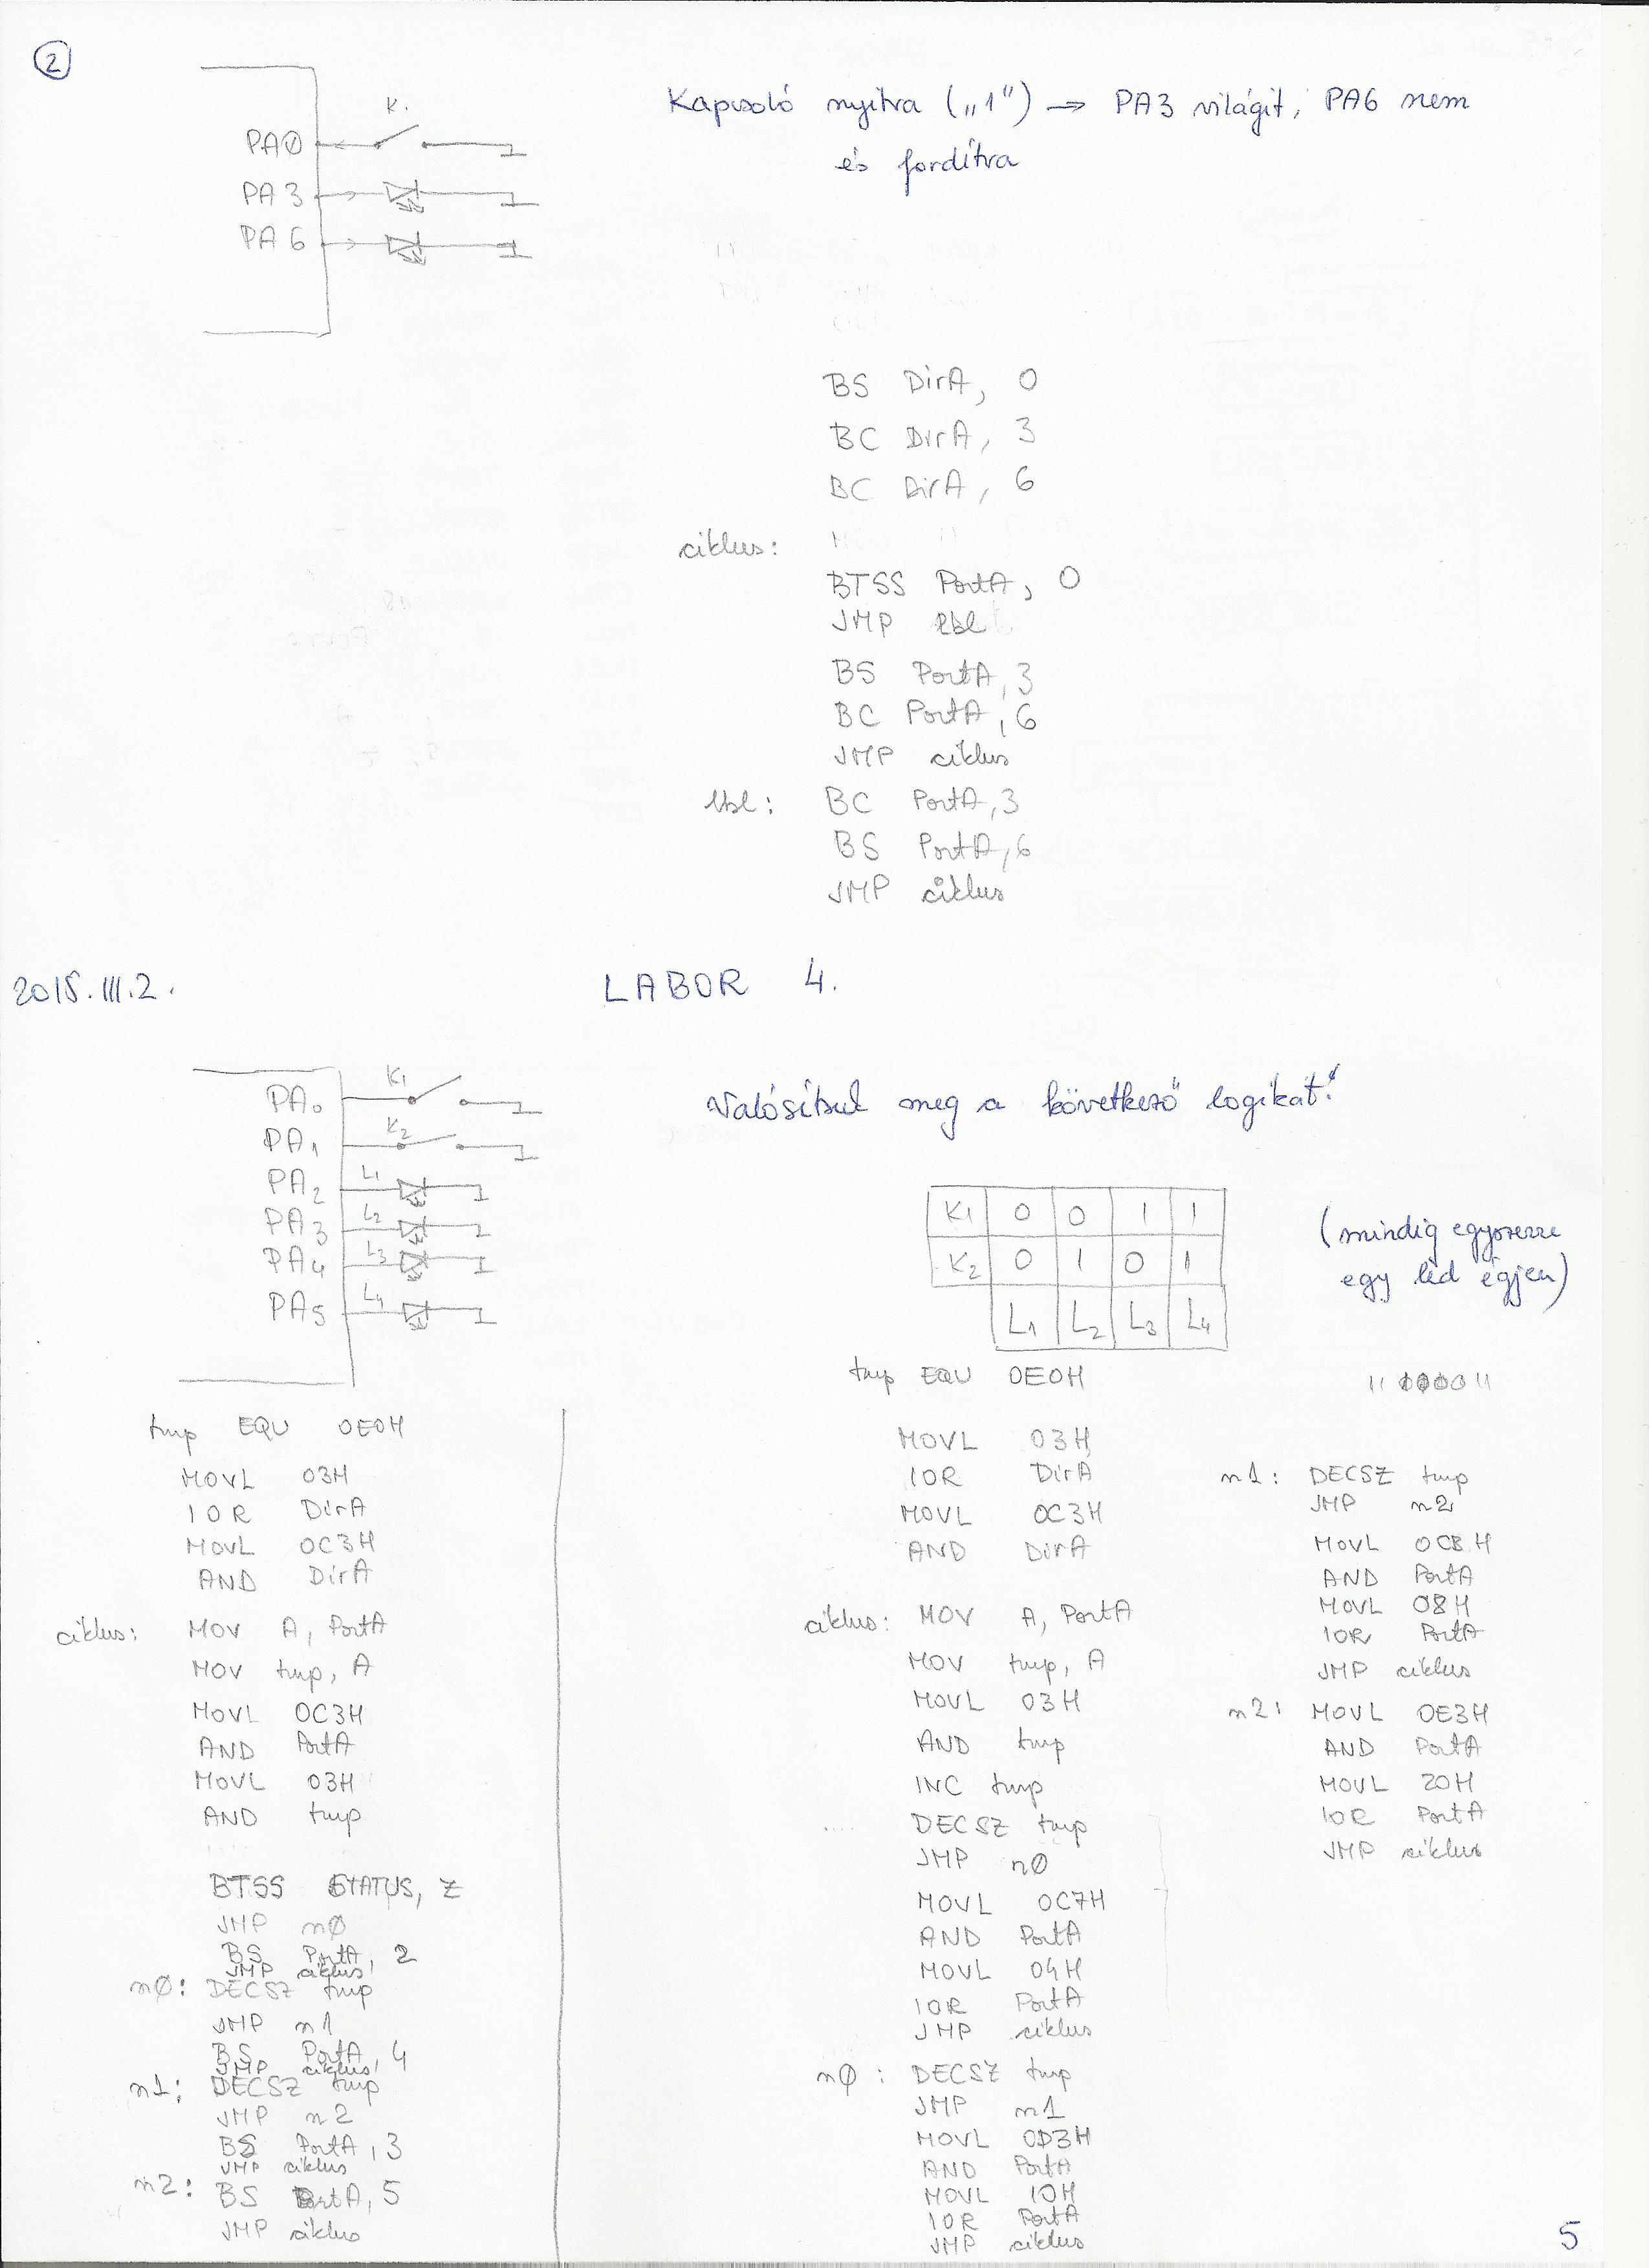 2
K.
PA0
PA3
PA6
Kapcsoló nyitva („1") → PA3 világít, PA6 nem
és fordítva
BS DirA, 0
BC DirA, 3
BC DirA, 6
ciklus:
BTSS PortA, 0
JMP lbl
BS PortA, 3
BC PortA, 6
JMP ciklus
lbl: BC PortA, 3
BS PortA, 6
JMP ciklus
2015.III.2.
LABOR 4.
PA0 K1
PA1 K2
PA2 L1
PA3 L2
PA4 L3
PA5 L4
Valósítsul meg a következő logikát!
K1 0 0 1 1
K2 0 1 0 1
L1 L2 L3 L4
(mindig egyszerre
egy led égjen)
tmp EQU 0E0H
MOVL 03H
IOR DirA
MOVL 0C3H
AND DirA
ciklus: MOV A, PortA
MOV tmp, A
MOVL 0C3H
AND PortA
MOVL 03H
AND tmp
BTSS STATUS, Z
JMP n0
BS PortA, 2
JMP ciklus
n0: DECSZ tmp
JMP n1
BS PortA, 4
JMP ciklus
n1: DECSZ tmp
JMP n2
BS PortA, 3
JMP ciklus
n2: BS PortA, 5
JMP ciklus
tmp EQU 0E0H
MOVL 03H
IOR DirA
MOVL 0C3H
AND DirA
ciklus: MOV A, PortA
MOV tmp, A
MOVL 03H
AND tmp
INC tmp
DECSZ tmp
JMP n0
MOVL 0C7H
AND PortA
MOVL 04H
IOR PortA
JMP ciklus
n0: DECSZ tmp
JMP n1
MOVL 0D3H
AND PortA
MOVL 10H
IOR PortA
JMP ciklus
11000011
n1: DECSZ tmp
JMP n2
MOVL 0CBH
AND PortA
MOVL 08H
IOR PortA
JMP ciklus
n2: MOVL 0E3H
AND PortA
MOVL 20H
IOR PortA
JMP ciklus
5